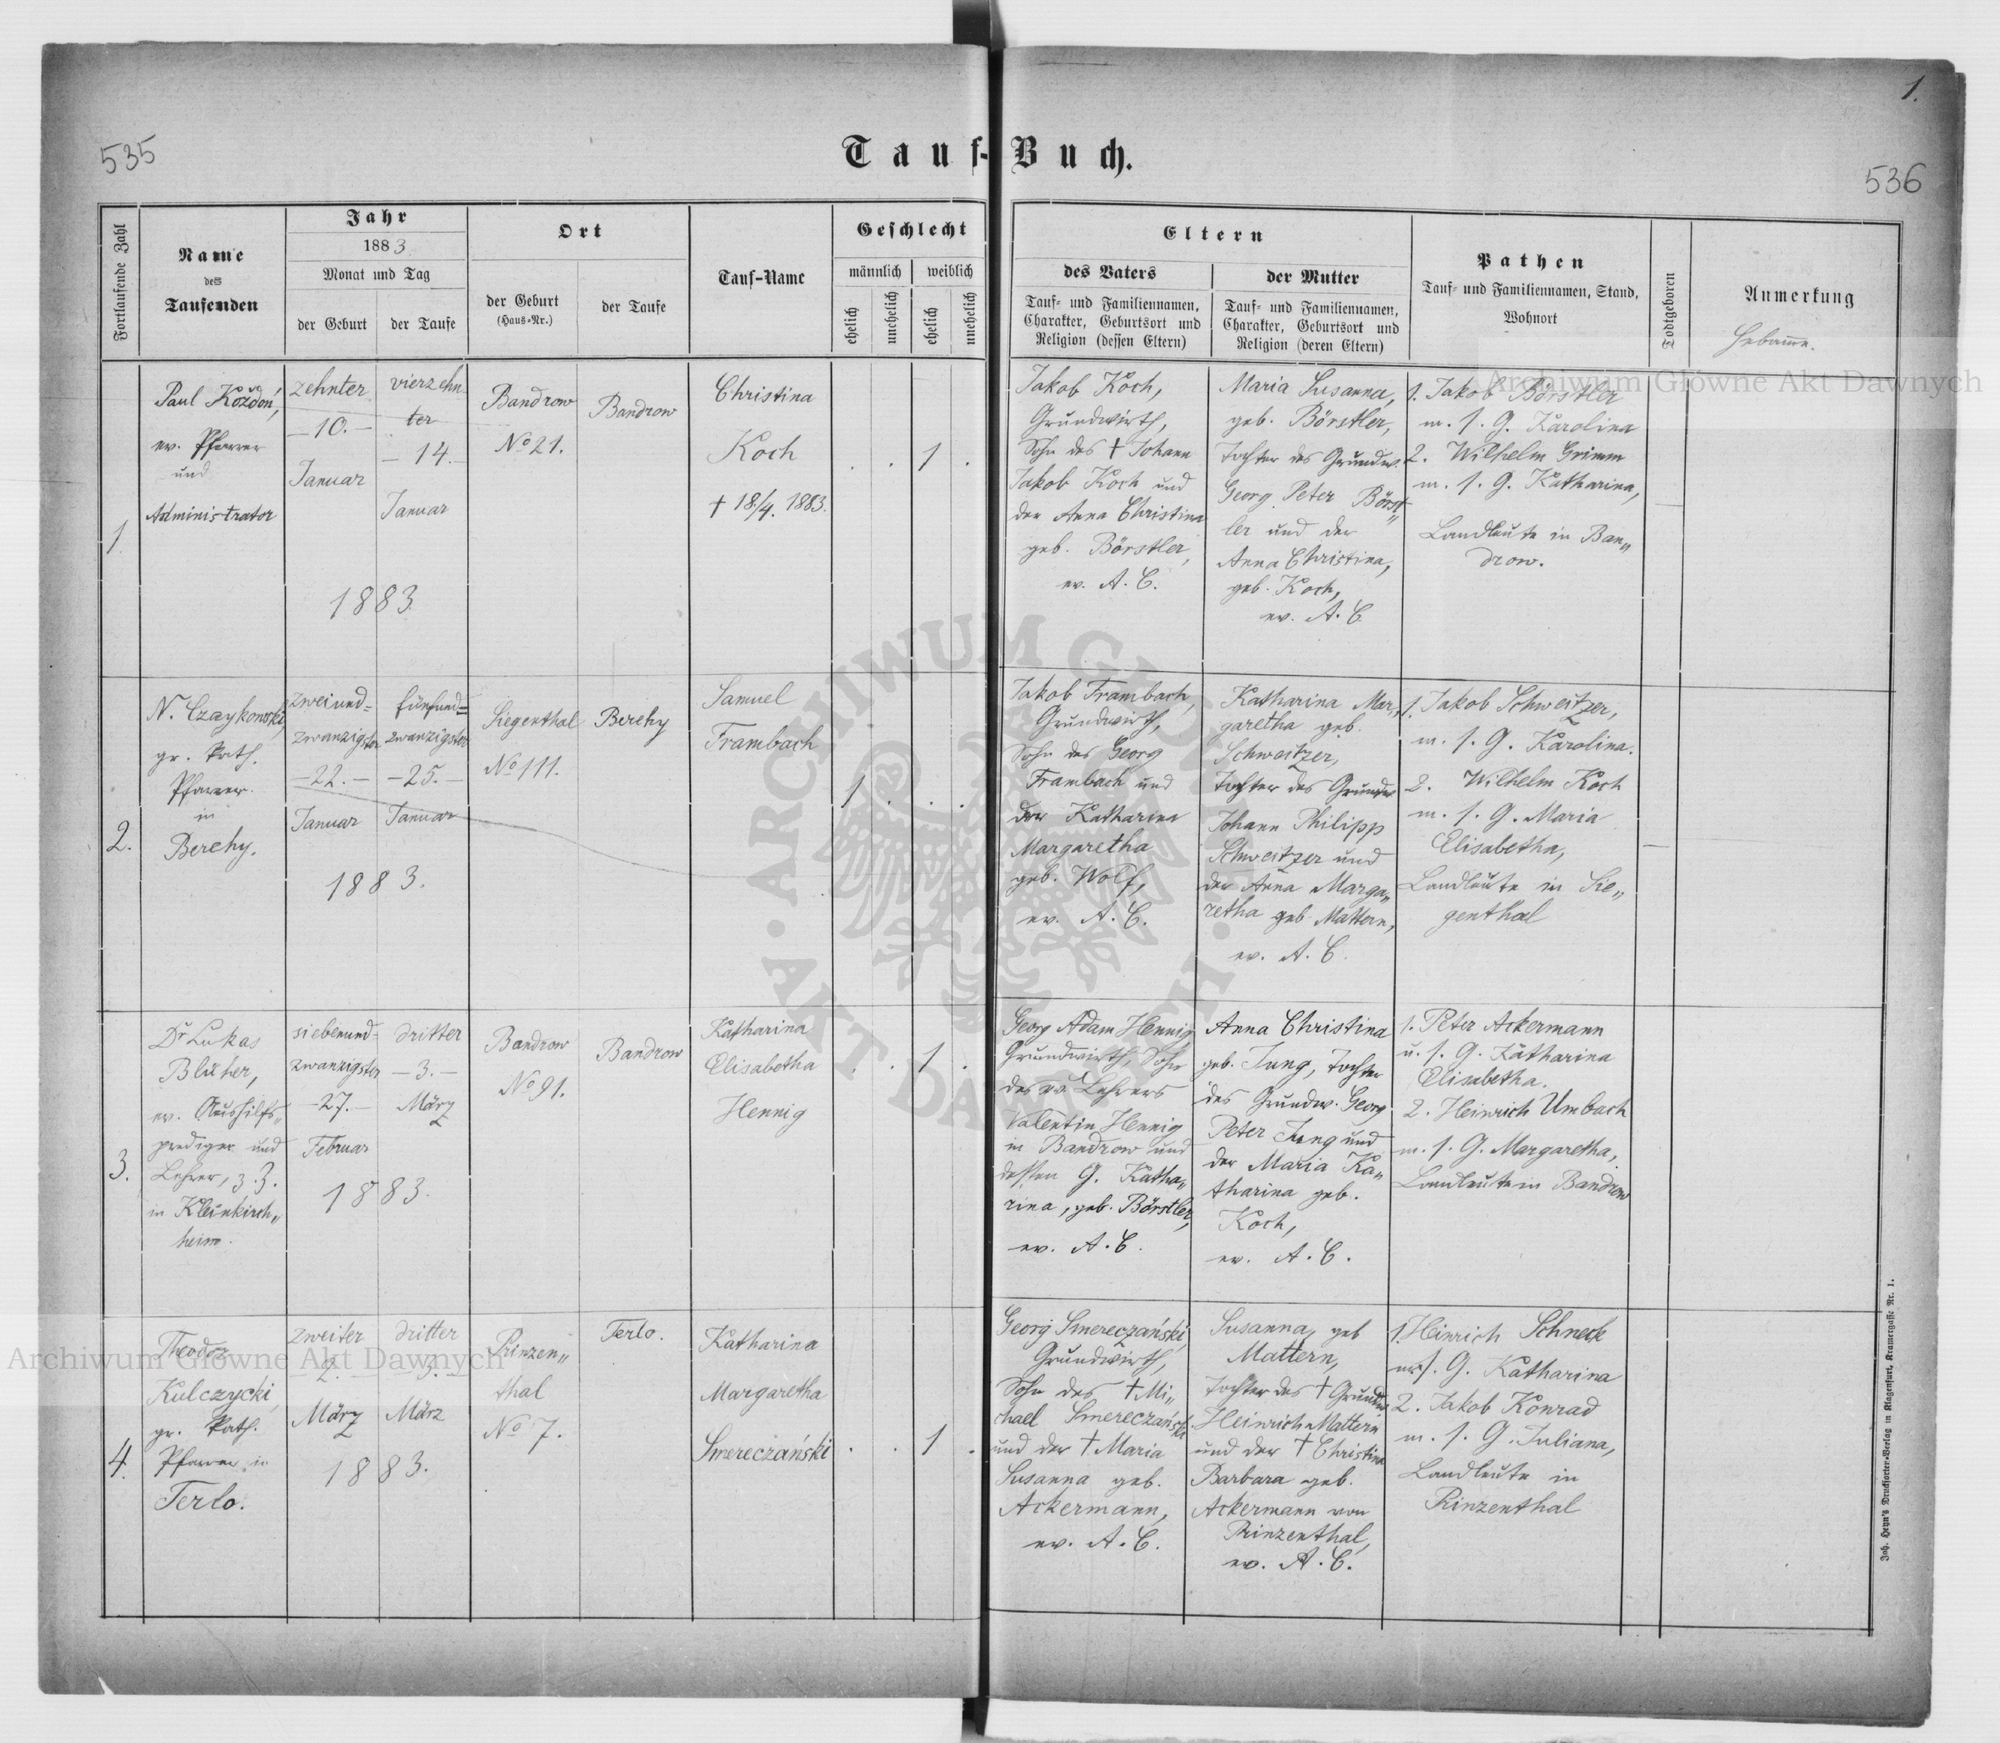 1.
535
Tauf-Buch.
536
Fortlaufende Zahl
Name
des
Taufenden
Jahr
1883.
Monat und Tag
der Geburt
der Taufe
Ort
der Geburt
(Haus-Nr.)
der Taufe
Tauf-Name
Geschlecht
männlich
weiblich
ehelich
unehelich
ehelich
unehelich
Eltern
des Vaters
Tauf- und Familiennamen,
Charakter, Geburtsort und
Religion (dessen Eltern)
der Mutter
Tauf- und Familiennamen,
Charakter, Geburtsort und
Religion (deren Eltern)
Pathen
Tauf- und Familiennamen, Stand,
Wohnort
Todtgeboren
Anmerkung
Hebamme.
1.
Paul Koždoń,
ev. Pfarrer
und
Administrator
zehnter
—10.—
Januar
vierzehn-
ter
—14.—
Januar
1883.
Bandrow
No 21.
Bandrow
Christina
Koch
† 18/4. 1883.
. . 1 .
Jakob Koch,
Grundwirth,
Sohn des † Johann
Jakob Koch und
der Anna Christina
geb. Börstler,
ev. A. C.
Maria Susanna,
geb. Börstler,
Tochter des Grundw.
Georg Peter Börst„
ler und der
Anna Christina,
geb. Koch,
ev. A. C.
1. Jakob Börstler
m. s. G. Karolina
2. Wilhelm Grimm
m. s. G. Katharina,
Landleute in Ban„
drow.
2.
N. Czaykowski,
gr. kath.
Pfarrer
in
Berehy.
zweiund=
zwanzigster
—22.—
Januar
fünfund=
zwanzigster
—25.—
Januar
1883.
Siegenthal
No 111.
Berehy
Samuel
Frambach
1 . . .
Jakob Frambach,
Grundwirth,
Sohn des Georg
Frambach und
der Katharina
Margaretha
geb. Wolf,
ev. A. C.
Katharina Mar„
garetha geb.
Schweitzer,
Tochter des Grundw
Johann Philipp
Schweitzer und
der Anna Marga„
retha geb. Mattern,
ev. A. C.
1. Jakob Schweitzer,
m. s. G. Karolina.
2. Wilhelm Koch
m. s. G. Maria
Elisabetha,
Landleute in Sie„
genthal
3.
Dr Lukas
Blüher,
ev. Aushilfs„
prediger und
Lehrer, z. Z.
in Kleinkirch„
heim.
siebenund-
zwanzigster
—27.—
Februar
dritter
—3.—
März
1883.
Bandrow
No 91.
Bandrow
Katharina
Elisabetha
Hennig
. . 1 .
Georg Adam Hennig
Grundwirth, Sohn
des ev. Lehrers
Valentin Hennig
in Bandrow und
dessen G. Katha„
rina, geb. Börstler,
ev. A. C.
Anna Christina
geb. Jung, Tochter
des Grundw. Georg
Peter Jung und
der Maria Ka„
tharina geb.
Koch,
ev. A. C.
1. Peter Ackermann
u. s. G. Katharina
Elisabetha.
2. Heinrich Umbach
m. s. G. Margaretha,
Landleute in Bandrow
4.
Theodor
Kulczycki,
gr. kath.
Pfarrer in
Terlo.
zweiter
2.
März
dritter
3.
März
1883.
Prinzen„
thal
No 7.
Terlo.
Katharina
Margaretha
Smereczański
. . 1 .
Georg Smereczański,
Grundwirth,
Sohn des † Mi„
chael Smereczański
und der † Maria
Susanna geb.
Ackermann,
ev. A. C.
Susanna, geb
Mattern,
Tochter des † Grundw
Heinrich Mattern
und der † Christina
Barbara geb.
Ackermann von
Prinzenthal,
ev. A. C.
1. Heinrich Schneck
m. s. G. Katharina
2. Jakob Konrad
m. s. G. Juliana,
Landleute in
Prinzenthal
Joh. Heyn's Drucksorten-Verlag in Klagenfurt, Kramergasse Nr. 1.
Archiwum Główne Akt Dawnych
Archiwum Główne Akt Dawnych
ARCHIWUM GŁÓWNE AKT DAWNYCH